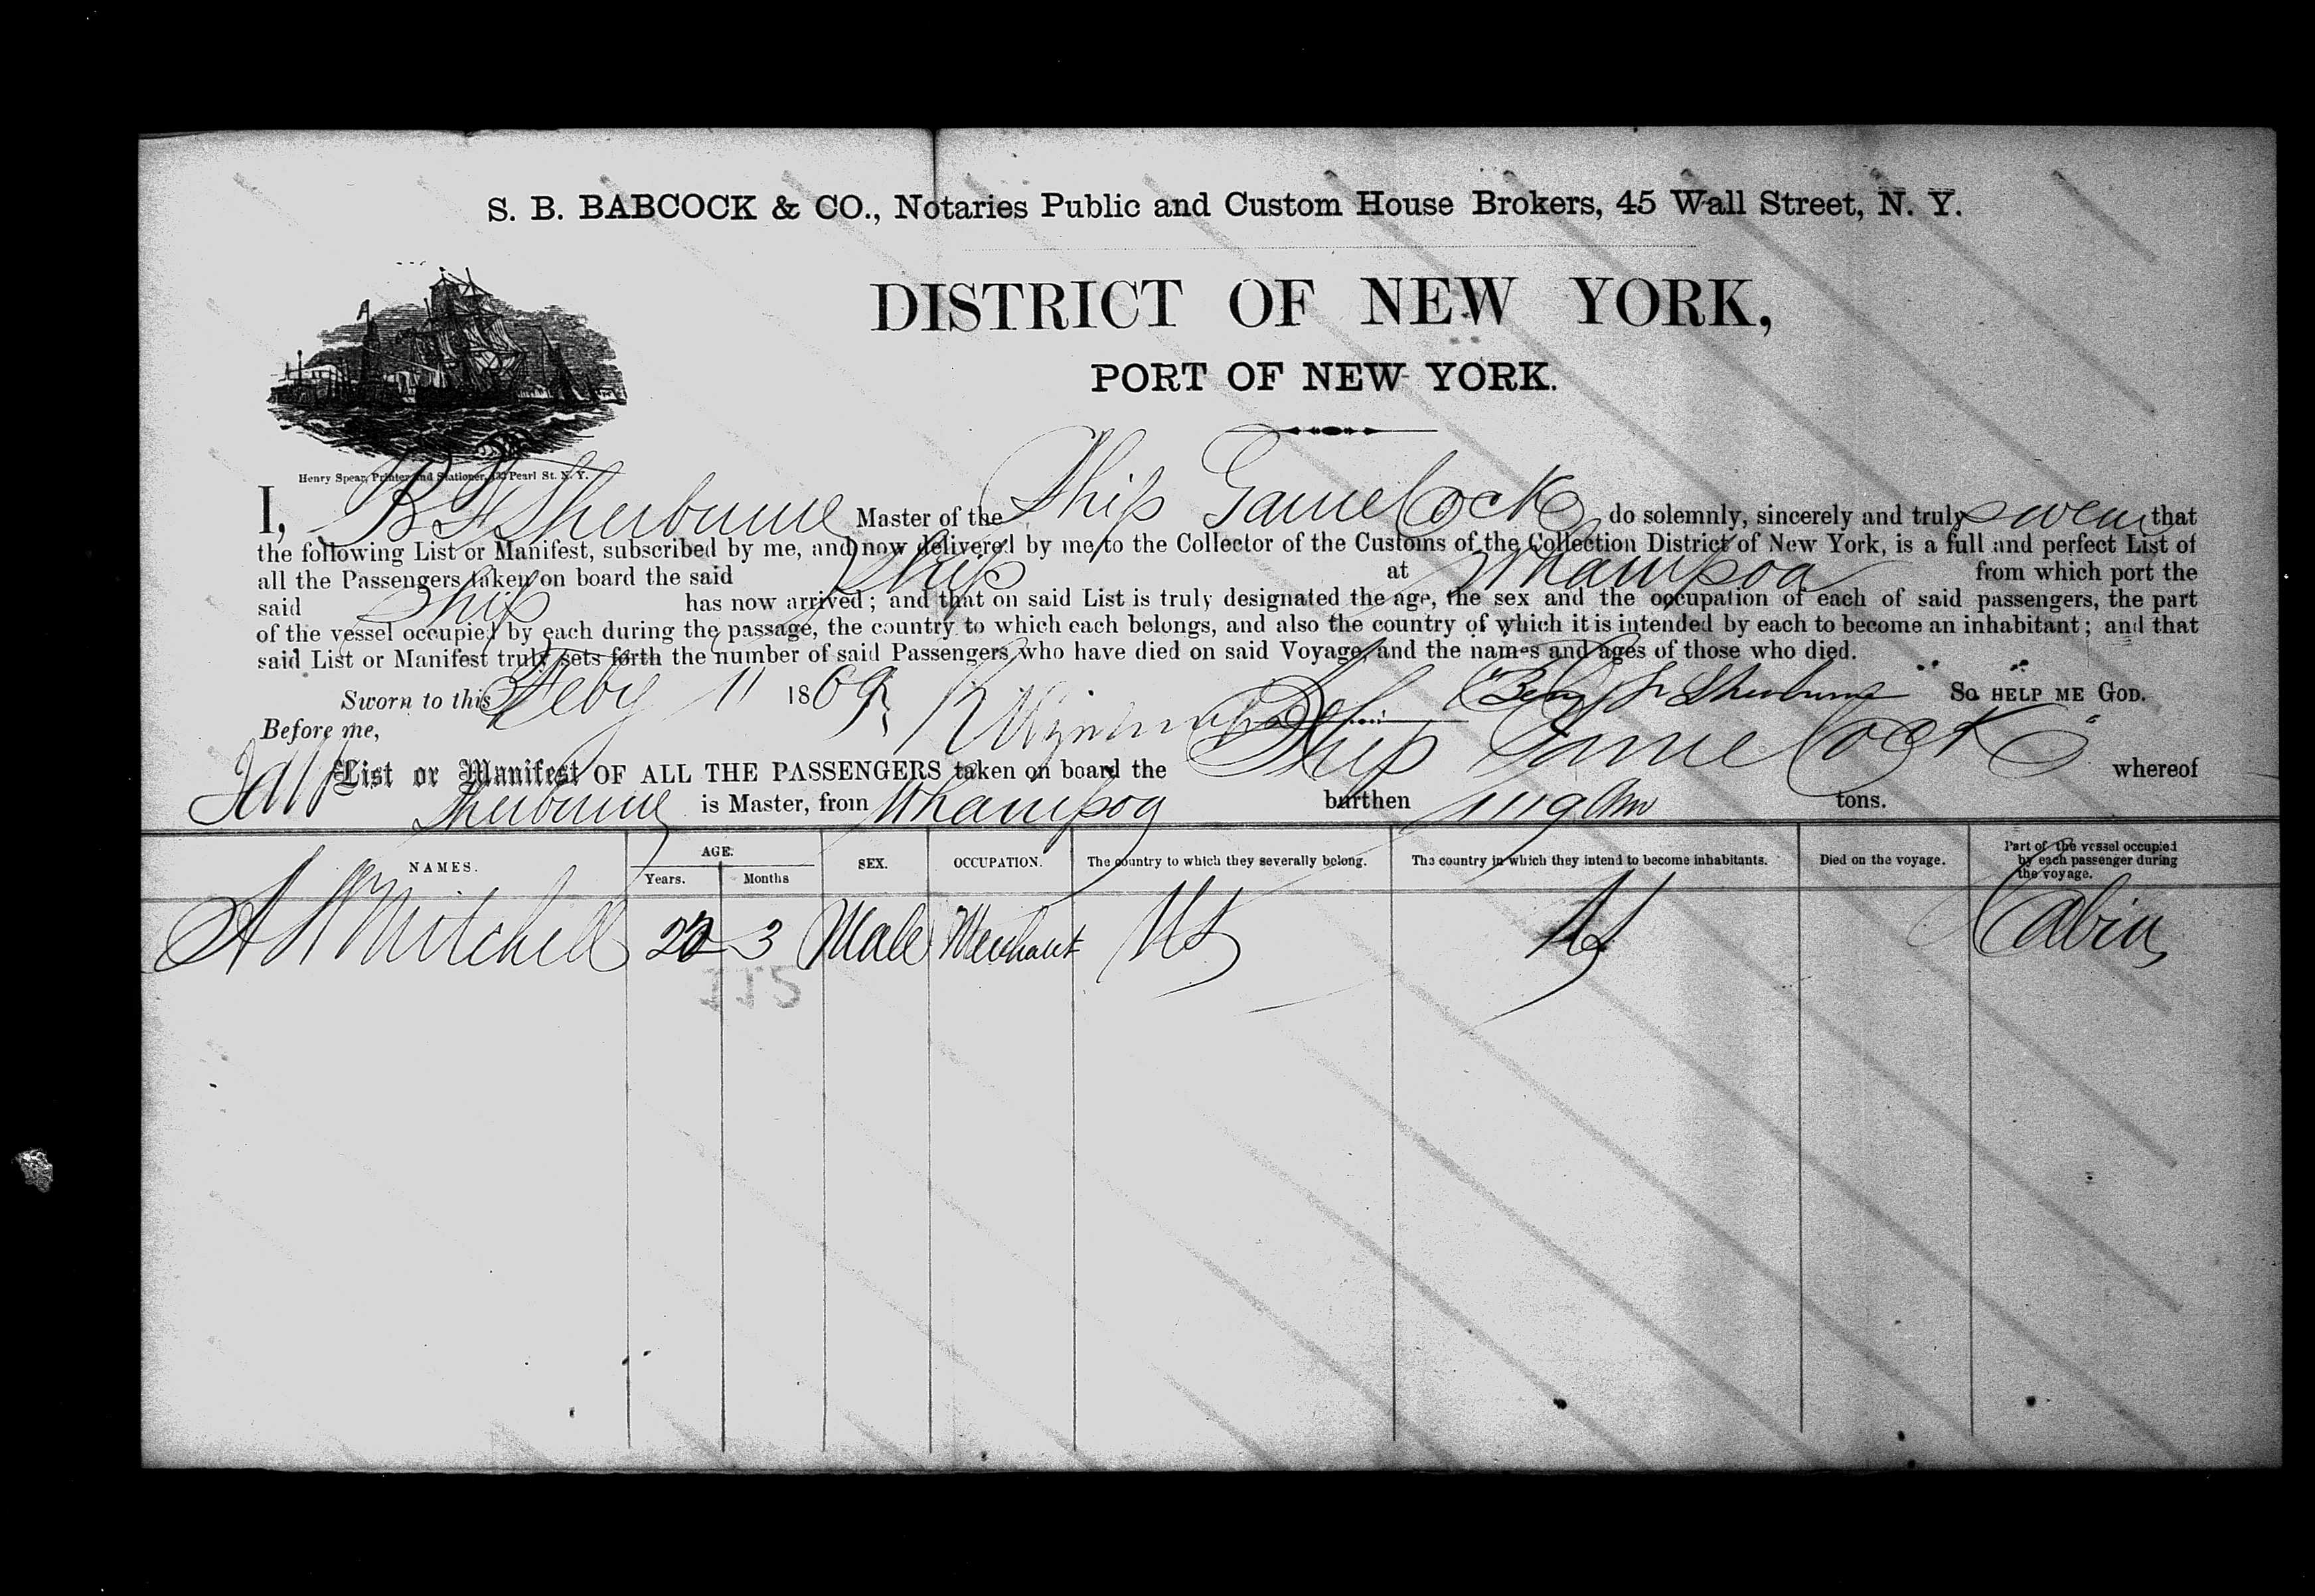 S. B. BABCOCK & CO., Notaries Public and Custom House Brokers, 45 Wall Street, N. Y.
DISTRICT OF NEW YORK,
PORT OF NEW YORK.
Henry Spear, Printer and Stationer, Pearl St. N. Y.
I, B F Sherburne Master of the Ship Game Cock do solemnly, sincerely and truly swear that
the following List or Manifest, subscribed by me, and now delivered by me to the Collector of the Customs of the Collection District of New York, is a full and perfect List of
all the Passengers taken on board the said Ship at Whampoa from which port the
said Ship has now arrived; and that on said List is truly designated the age, the sex and the occupation of each of said passengers, the part
of the vessel occupied by each during the passage, the country to which each belongs, and also the country of which it is intended by each to become an inhabitant; and that
said List or Manifest truly sets forth the number of said Passengers who have died on said Voyage, and the names and ages of those who died.
Sworn to this Feby 11 1869 Benj F Sherburne So HELP ME GOD.
Before me,
List or Manifest OF ALL THE PASSENGERS taken on board the Ship Game Cock whereof
Sherburne is Master, from Whampoa burthen 1119 tons.
NAMES. AGE. Years. Months SEX. OCCUPATION. The country to which they severally belong. The country in which they intend to become inhabitants. Died on the voyage. Part of the vessel occupied by each passenger during the voyage.
Mitchell 3 Male Merchant US US Cabin
112